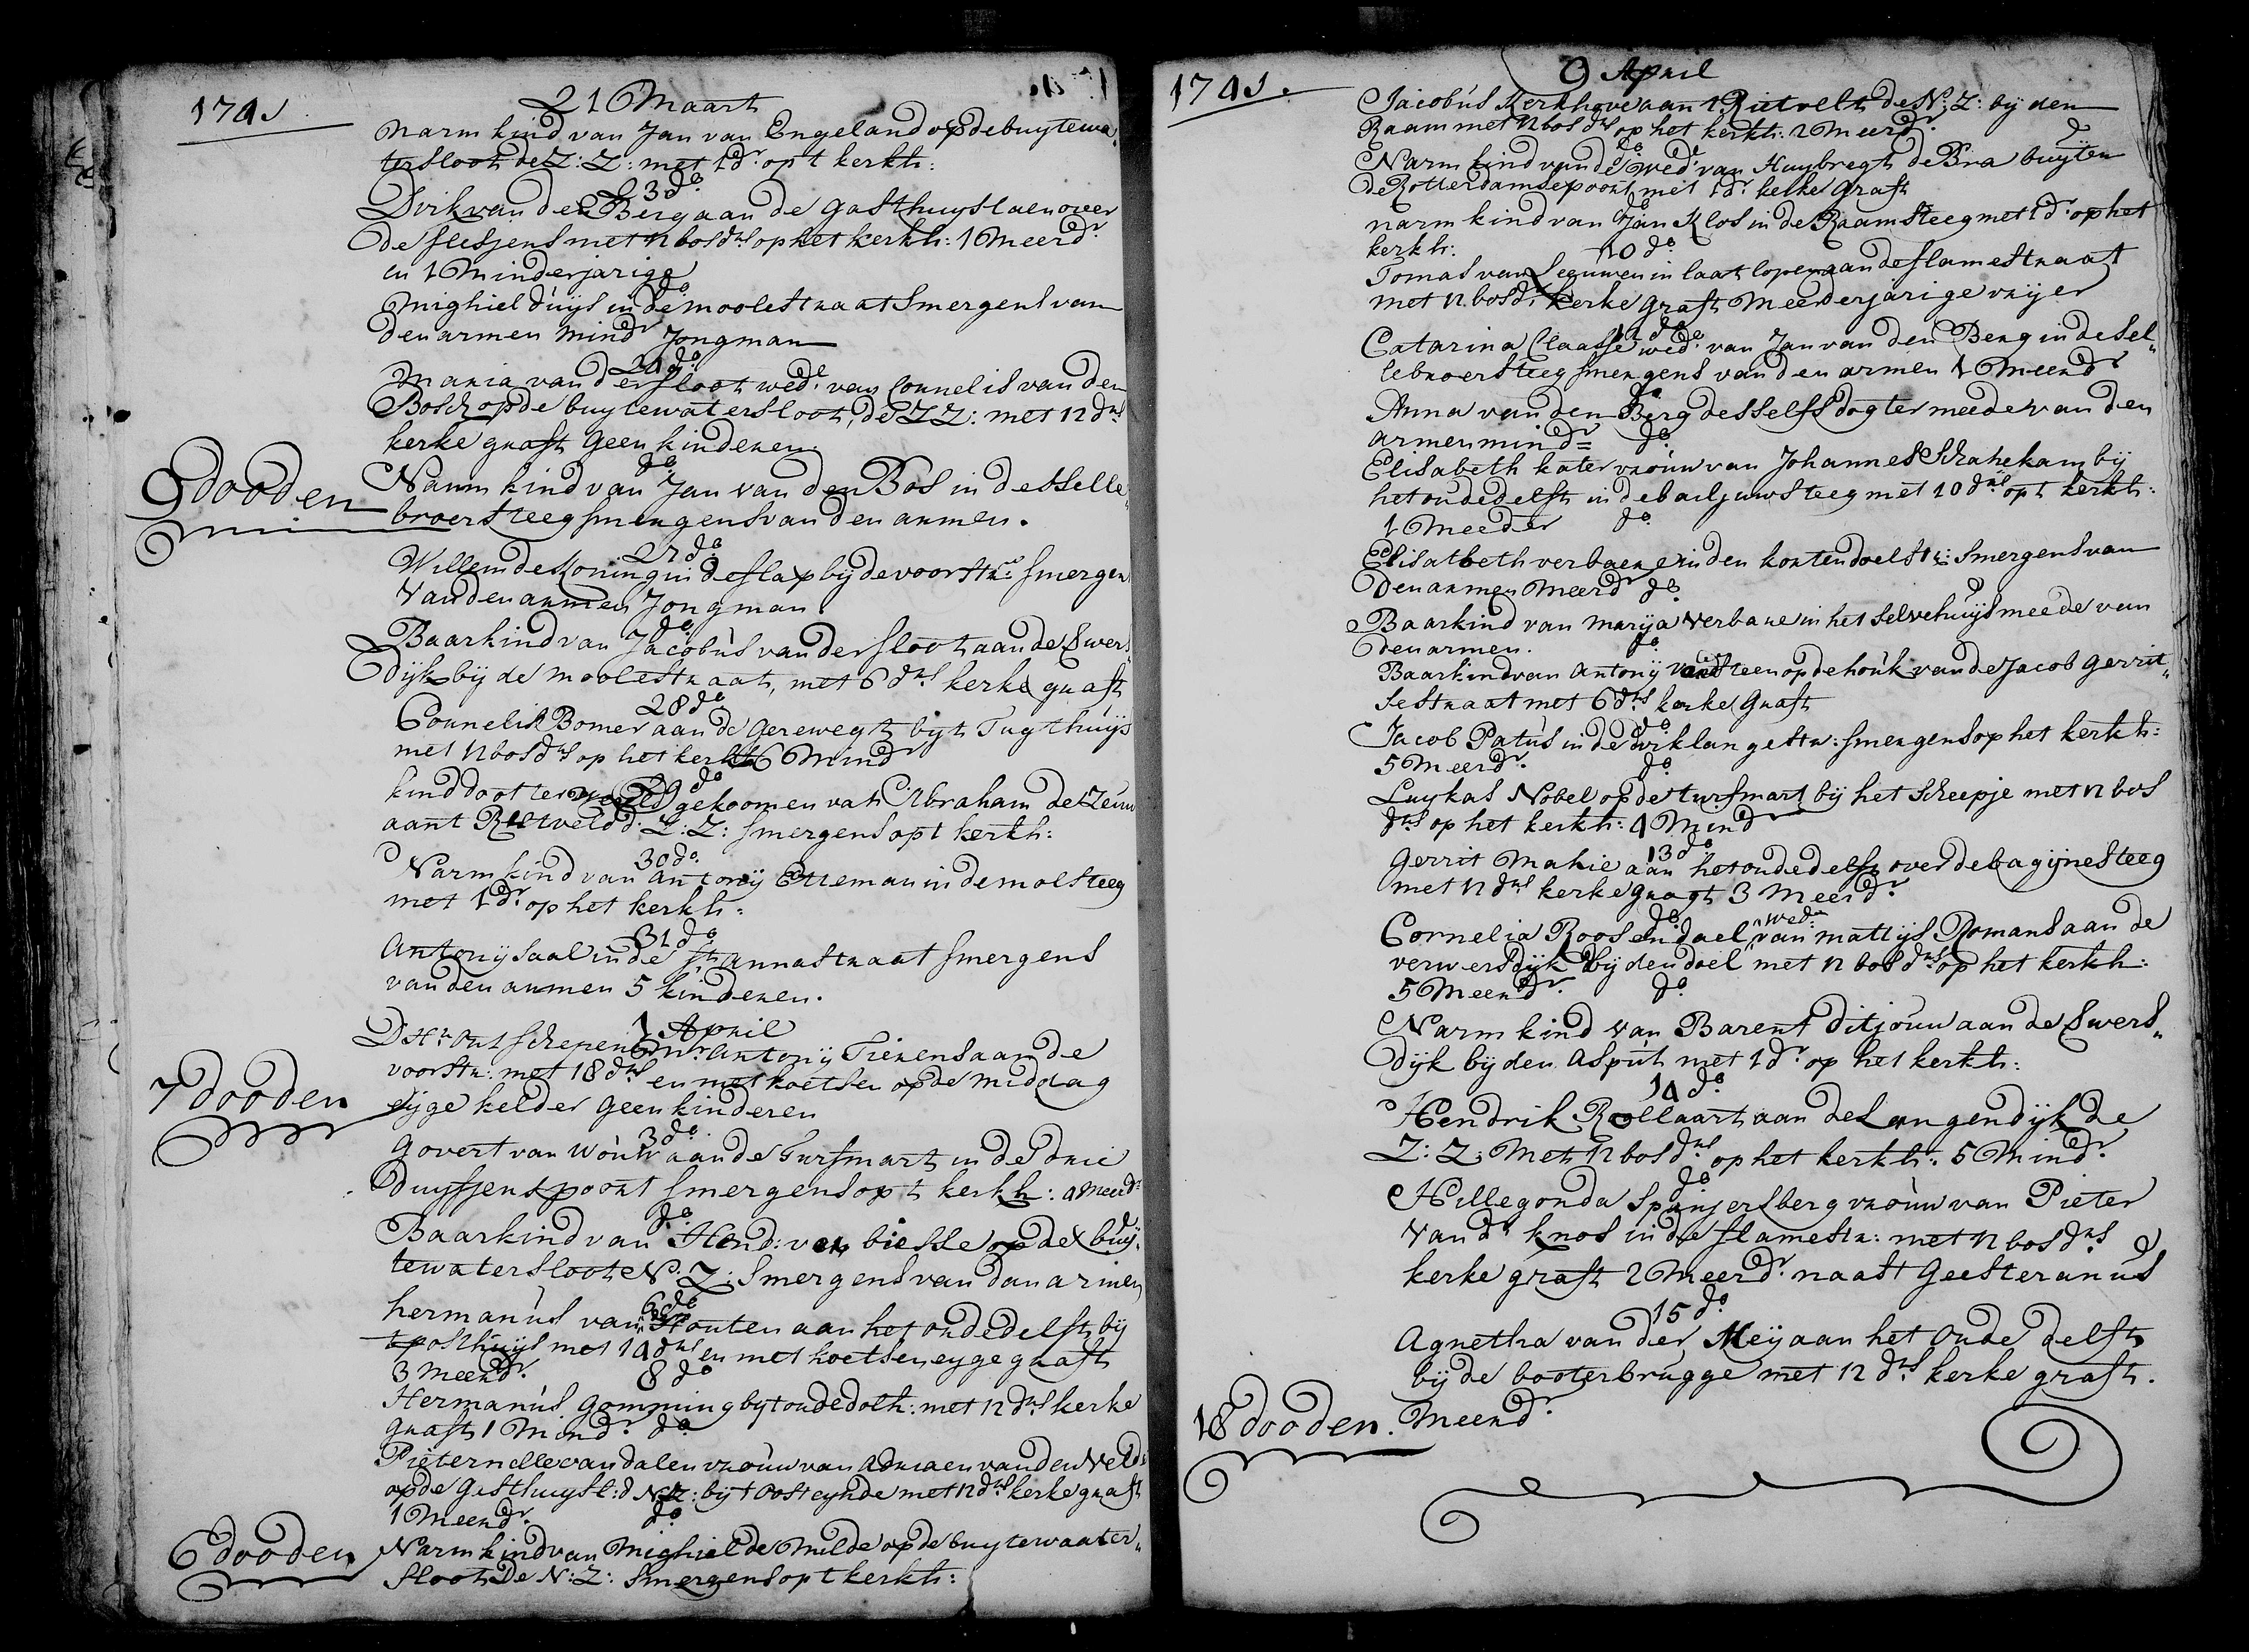 1741
21 Maart
Narm kind van Jan van Engeland op de buytewa„
tersloot de Z: Z: met 1 dr. op t kerkh:
23 do.
Dirk van den Berg aan de gasthuyslaen over
de flesjens met 12 bos drs op het kerkh: 1 Meerdr.
en 1 Minderjarige
do.
Mighiel duijs in de moolestraat smergens van
den armen mindr Jongman
24 do.
Maria van der sloot wede. van Cornelis van den
Bosch op de buytewatersloot, de ZZ: met 12 drs
kerke graft geen kinderen
do.
9 dooden
Narm kind van Jan van den Bos in de Selle„
broersteeg smergens van den armen.
27 do.
Willem de Koning in de flap bij de voorstr: smergens
van den armen Jongman.
do.
Baarkind van Jacobus van der sloot aan de Swers„
dijk bij de moolestraat, met 6 drs kerke graft
28 do.
Cornelis Bomer aan de gerewegt bijt Tugthuijs
met 12 bos drs op het kerkh 6 Mindr
29 do.
kind doot ter gekoomen van Abraham de Zeuw
aant Rietveld d: Z: Z: smergens opt kerkh:
30 do.
Narm kind van antonij Etteman in de molsteeg
met 1 dr. op het kerkh:
31 do.
Antonij saal in de st annastraat smergens
van den armen 5 kinderen.
1 April
D Hr. Out schepen Mr. Antonij Tierens aan de
voorstr: met 18 drs en met koetsen op de middag
7 dooden
eyge kelder geen kinderen
3 do.
Govert van Wouw aan de Turfmart in de drie
Duyfjens poort smergens opt kerkh: 4 Meerdr
do.
Baarkind van Hend: van biesse op de buy„
tewatersloot N: Z: Smergens van dan armen
6 do
hermanus van Houten aan het oude delft bij
t posthuijs met 14 drs en met koetsen eyge graft
3 Meerdr.
8 do
Hermanus Gomming bijt oude delft: met 12 drs kerke
graft 1 Mindr. do.
Pieternelle van dalen vrouw van Adriaen van den Veld:
op de Gasthuysl: d NZ: bijt Oosteynde met 12 drs kerke graft
1 Meerdr. do.
6 dooden
Narm kind van Mighiel de Milde op de buytewaater„
sloot De N: Z: Smergens opt kerkh:

1741.
9 April
Jacobus Kerkhove aan t Rietvelt de N: Z: bij den
Raam met 12 bos drs op het kerkh: 2 Meerdr.
do.
Narm kind van de wede. van Huybregt de Bra buyten
de Rotterdamse poort met 1 dr. kerke graft
do
narm kind van Jan Klos in de Raamsteeg met 1 dr. op het
kerkh:
10 do.
Tomas van Leeuwen in laat lopen aan de flamestraat
met 12 bos drs kerke graft Meerderjarige vrijer
12 do.
Catarina Claasse wede. van Jan van den Berg in de Sel„
lebroersteeg smergens van den armen 1 Meerdr
do.
Anna van den Berg desselfs dogter meede van den
armen mindr do.
Elisabeth kater vrouw van Johannes bij
het oude delft in de bailjuwsteeg met 10 drs opt kerkh:
1 Meeder do.
Elisabeth verbaene in den korten doelstr: smergens van
den armen Meerdr do.
Baarkind van Marija Verbane in het selve huijs meede van
den armen. do.
Baarkind van Antonij van steen op de houk van de Jacob gerrit„
sestraat met 6 drs kerke graft
do
Jacob Patus in de dirklangestr: smergens op het kerkh:
5 Meerdr. do.
Luykas Nobel op de turfmart bij het scheepje met 12 bos
drs op het kerkh: 4 Mindr
13 do.
Gerrit Mahie aan het oude delft over de bagijnesteeg
met 12 drs kerke gragt 3 Meerdr.
do. wede
Cornelia Roosendael van mattijs Romans aan de
verwersdijk bij den doel met 12 bos drs op het kerkh:
5 Meerdr. do.
Narm kind van Barent ditjouw aan de Swers„
dijk bij den Asput met 1 dr. op het kerkh:
14 do.
Hendrik Rollaart aan de Langendijk de
Z: Z: Met 12 bos drs op het kerkh: 5 Mindr.
do
Hillegonda Sprinjersberg vrouw van Pieter
van dr knos in de flamestr: met 12 bos drs
kerke graft 2 Meerdr. naast Geesteranus
15 do.
Agnetha van der Meij aan het Oude delft
bij de booterbrugge met 12 drs kerke graft.
18 dooden. Meerdr.